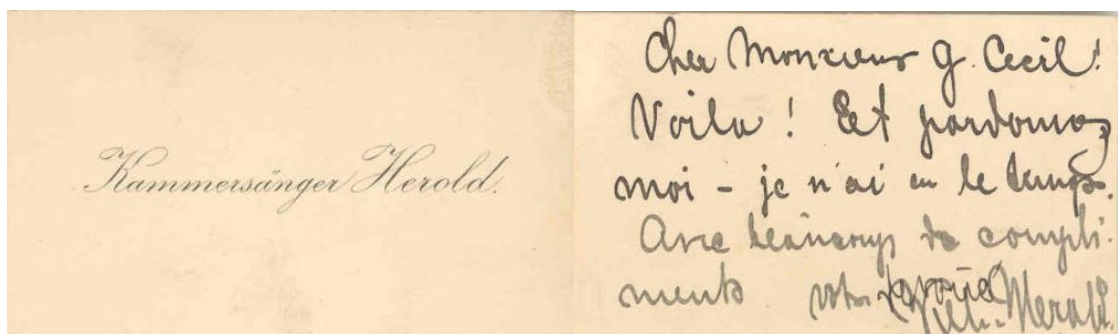 Kammersänger Herold.
Cher Monsieur G. Cecil!
Voila! Et pardonnez
moi - je n'ai eu le temps.
Avec beaucoup de compli-
ments votre Herold